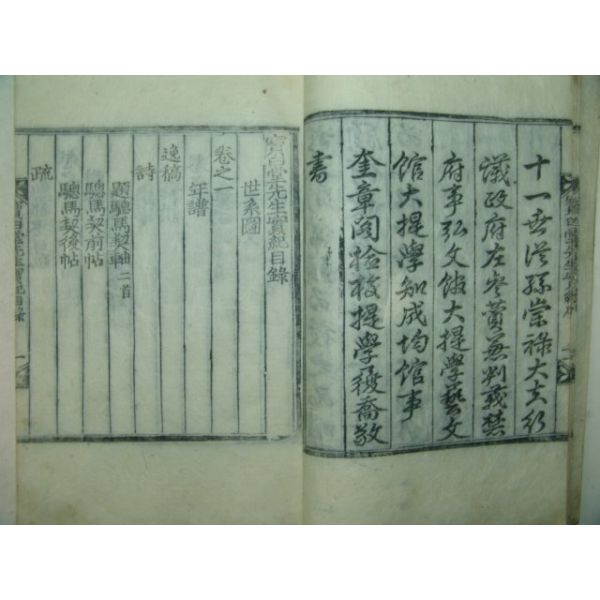 十一世從孫崇祿大夫行
議政府左參贊兼判義禁
府事弘文館大提學藝文
館大提學知成均館事
奎章閣檢校提學喬敬
書
寶白堂先生實紀目錄
世系圖
卷之一
年譜
逸稿
詩
題驄馬契軸二首
驄馬契前帖
驄馬契後帖
疏